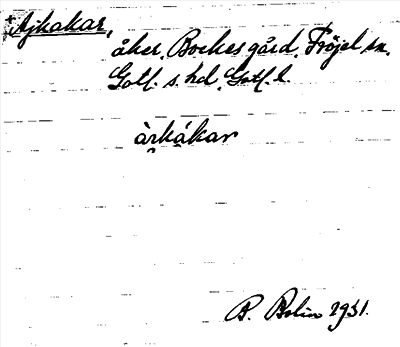 +Ajkakar,
åker, Bockes gård, Fröjel sn.
Gotl. s. hd, Gotl. l.
àrkákar
B. Bolin 1931.